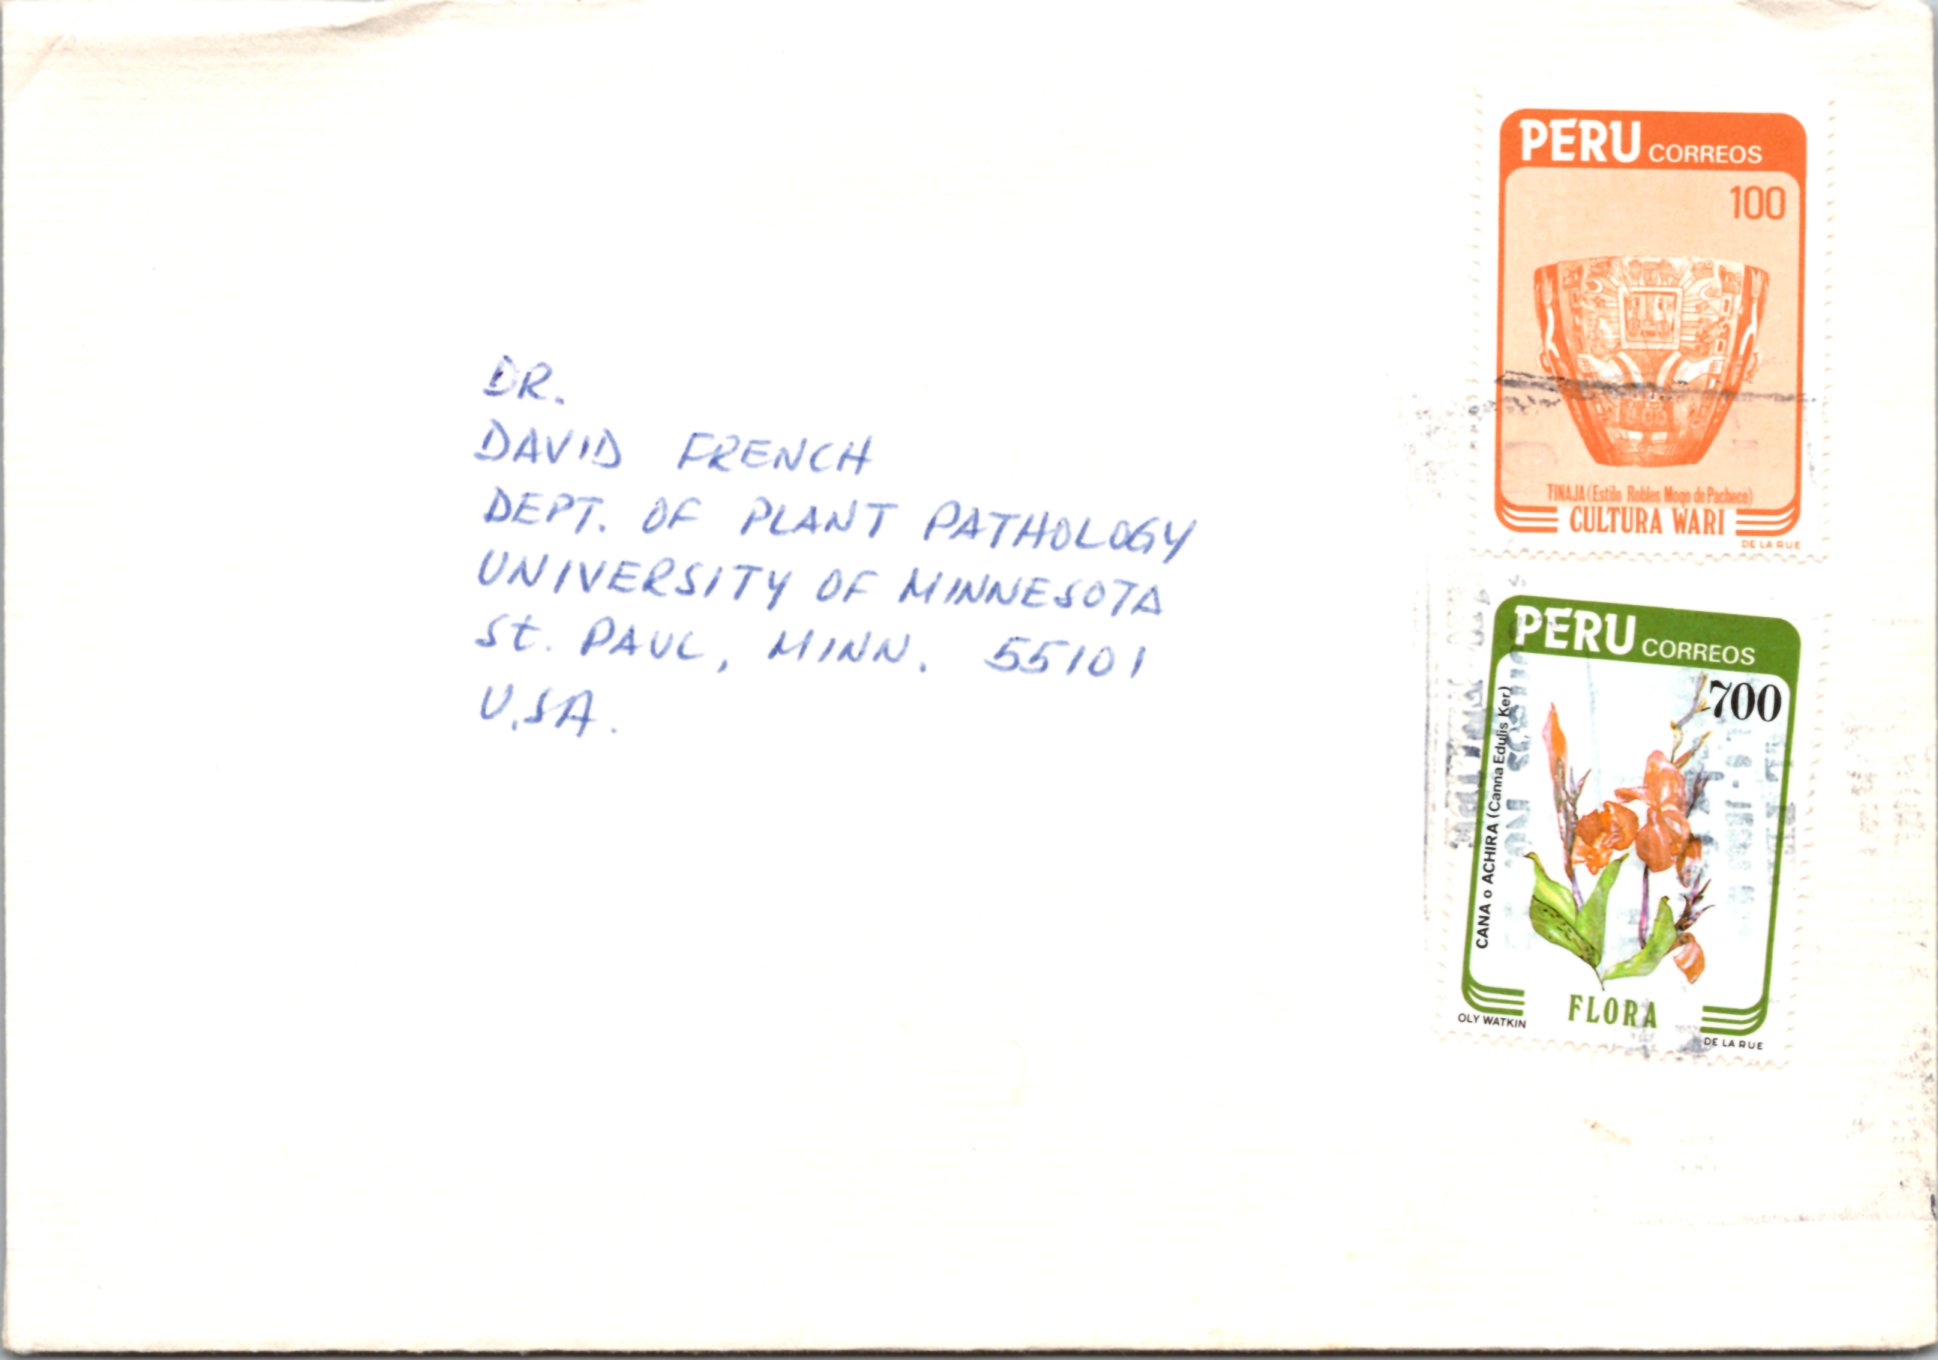 DR.
DAVID FRENCH
DEPT. OF PLANT PATHOLOGY
UNIVERSITY OF MINNESOTA
St. PAUL, MINN. 55101
U.S.A.
PERU CORREOS
100
TINAJA (Estilo Robles Moqo de Pacheco)
CULTURA WARI
DE LA RUE
PERU CORREOS
700
CANA o ACHIRA (Canna Edulis Ker)
FLORA
OLY WATKIN
DE LA RUE